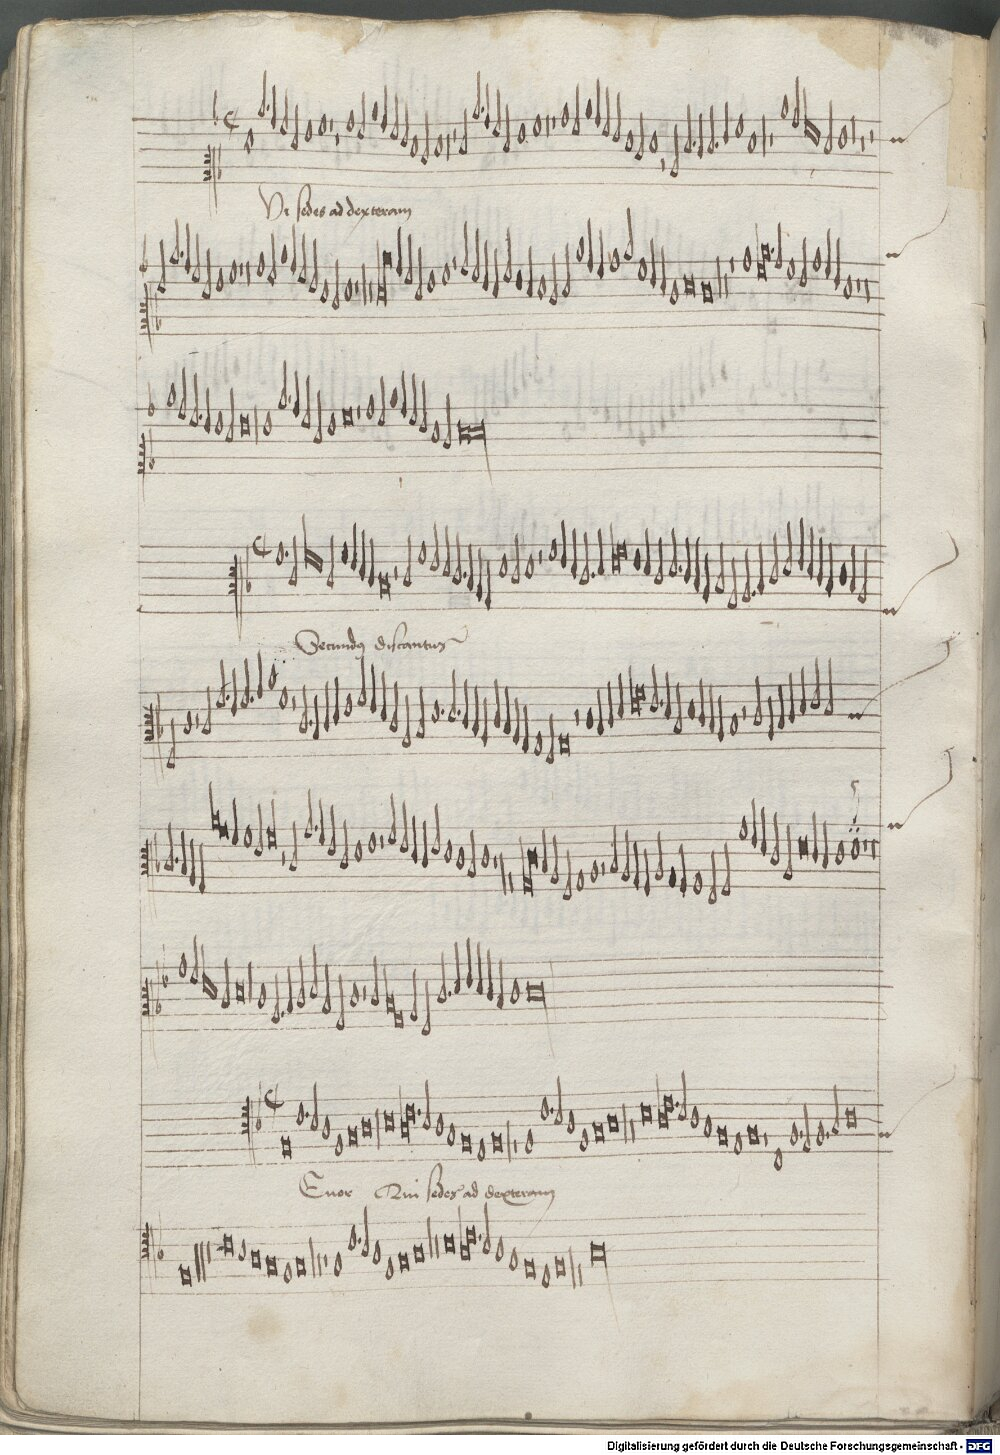 Qui sedes ad dexteram
Secundus discantus
Tenor Qui sedes ad dexteram
Digitalisierung gefördert durch die Deutsche Forschungsgemeinschaft - DFG